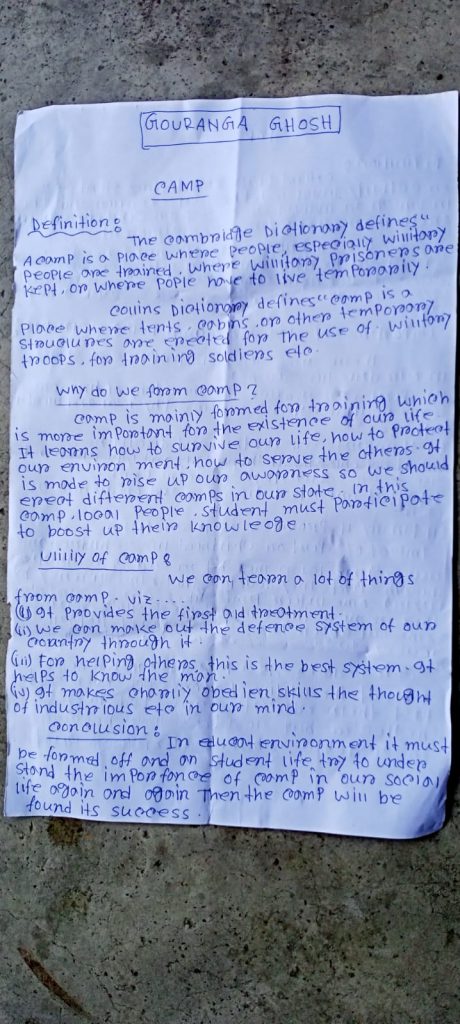 GOURANGA GHOSH
CAMP
Definition:
The cambridge Dictionary defines"
A camp is a place where people, especially willitary
people are trained, where willitary prisoners are
kept, or where pople have to live temporarily.
collins Dictionary defines "camp is a
place where tents, cabins, or other temporary
struclures are erected for the use of. willtary
troops, for training soldiers etc.
Why do we form camp?
camp is mainly formed for training which
is more important for the existence of our life.
It learns how to survive our life, how to protect
our environ ment, how to serve the others. It
is made to rise up our awarness so we should
ereat different camps in our state. In this
camp, local people, student must participate
to boost up their knowleoge.
Uliily of camp:
We can learn a lot of things
from camp. viz.....
(i) It provides the first aid treatment.
(ii) We can make out the defence system of our
country through it.
(iii) For helping others, this is the best system. It
helps to know the man.
(iv) It makes chariiy obedien skills the thought
of industrious etc in our mind.
conclusion:
In educat environment it must
be formed off and on student life try to under
stand the importance of camp in our social
life again and again Then the camp will be
found its success.